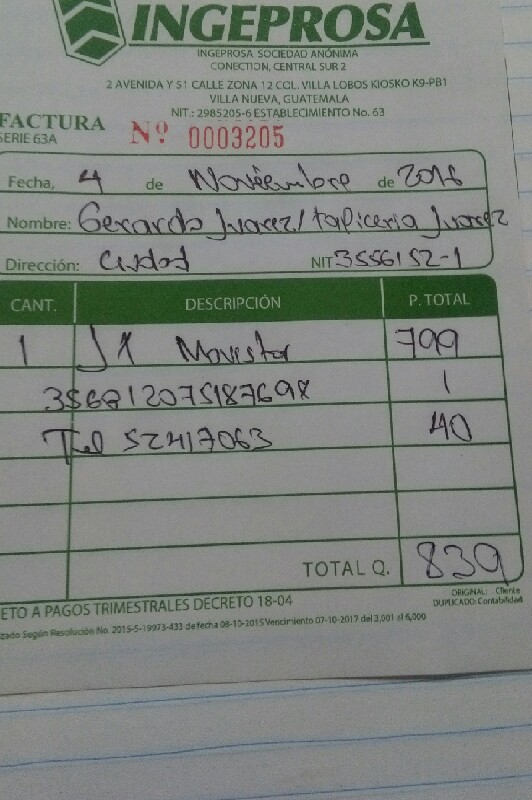 INGEPROSA
INGEPROSA SOCIEDAD ANÓNIMA
CONECTION, CENTRAL SUR 2
2 AVENIDA Y 51 CALLE ZONA 12 COL. VILLA LOBOS KIOSKO K9-PB1
VILLA NUEVA, GUATEMALA
NIT.: 2985205-6 ESTABLECIMIENTO No. 63
FACTURA Nº 0003205
SERIE 63A
Fecha, 4 de Noviembre de 2016
Nombre: Gerardo Juarez/tapiceria Juarez
Dirección: Ciudad NIT 3556152-1
CANT. DESCRIPCIÓN P. TOTAL
1 J1 Movistar 799
356812075187698 1
Tel 52417063 40
TOTAL Q. 839
ETO A PAGOS TRIMESTRALES DECRETO 18-04
ORIGINAL: Cliente
DUPLICADO: Contabilidad
zado Según Resolución No. 2015-5-19973-433 de fecha 08-10-2015 Vencimiento 07-10-2017 del 3,001 al 6,000